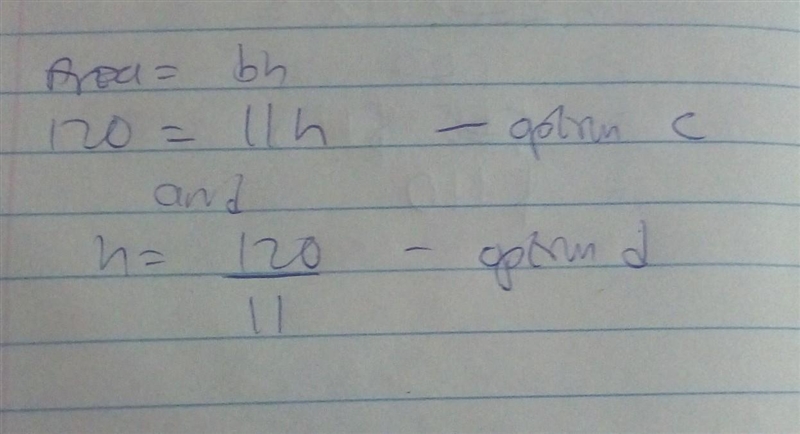 Area = bh
120 = 11h - option c
and
h = 120 - option d
11